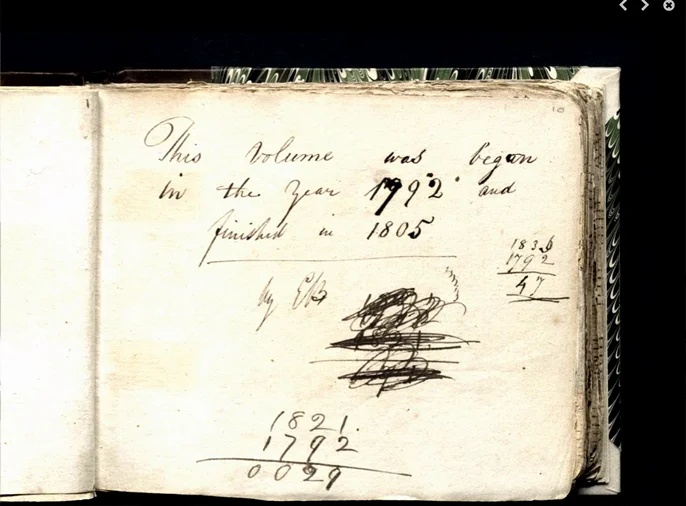 This volume was begun
in the year 1792 and
finished in 1805
1792
47
by EB
1821.
1792
0029